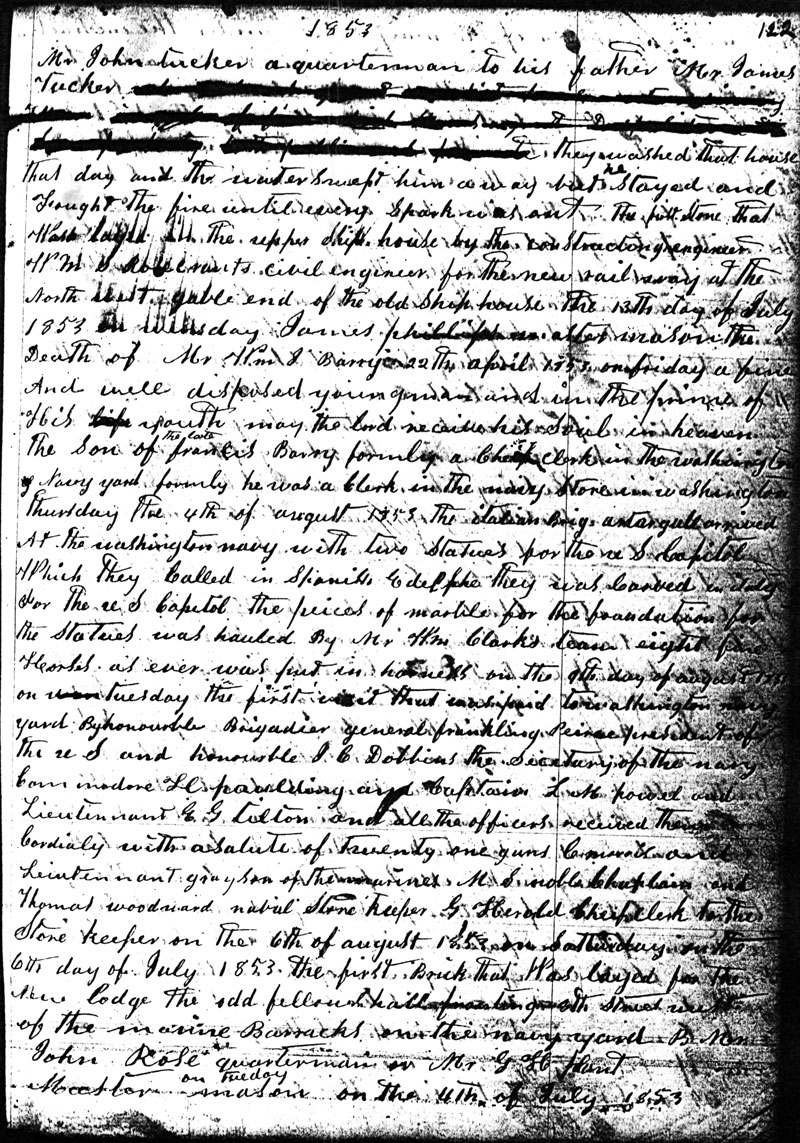 1853 122
Mr John tucker a quarterman to his father Mr James
Tucker
they washed that house
that day and the water swept him away but he stayed and
Fought the fire until every spark was out The first stone that
Was layed in the upper ship house by the constructing engineer
W M S civil engineer for the new rail way at the
North west gable end of the old Ship house the 13th day of July
1853 on wensday James phillips after mason the
Death of Mr Wm J Barry 22th april 1853 on friday a fine
And well disposed young man and in the prime of
His youth may the lord receive his Soul in heaven
the Son of the late francis Barry formly a Chief Clerk in the washington
Navy yard formly he was a Clerk in the navy Store in washington
thursday the 4th of august 1853 the italian Brig arrived
At the washington navy with two Statues for the u S Capitol
Which they Called in Spanish they was Carved in italy
For the u S Capitol the peices of marble for the foundation for
the Statues was hauled By Mr Wm Clarks team eight fine
Horses as ever was put in harness on the 9th day of august 1853
on tuesday the first visit that was paid to washington navy
yard By honourable Brigadier general frankling Peirce president of
the u S and honourble J C Dobbins the Secetary of the navy
Commodore H paulding and Captain L M powel and
Lieutennant E G tilton and all the officers received them
Cordialy with a salute of twenty one guns and
Lieutennant grayson of the marines M S noble Chaplain and
Thomas woodward nabal Store keeper G Herold Cheif Clerk to the
Store keeper on the 6th of august 1853 on Satturday on the
6th day of July 1853 the first Brick that Was layed for the
New lodge the odd fellows hall fronting 8th Street west
of the marine Barracks on the navy yard B Mr
John Rose quarterman or Mr G H plant
Master mason on tuesday on the 4th of July 1853